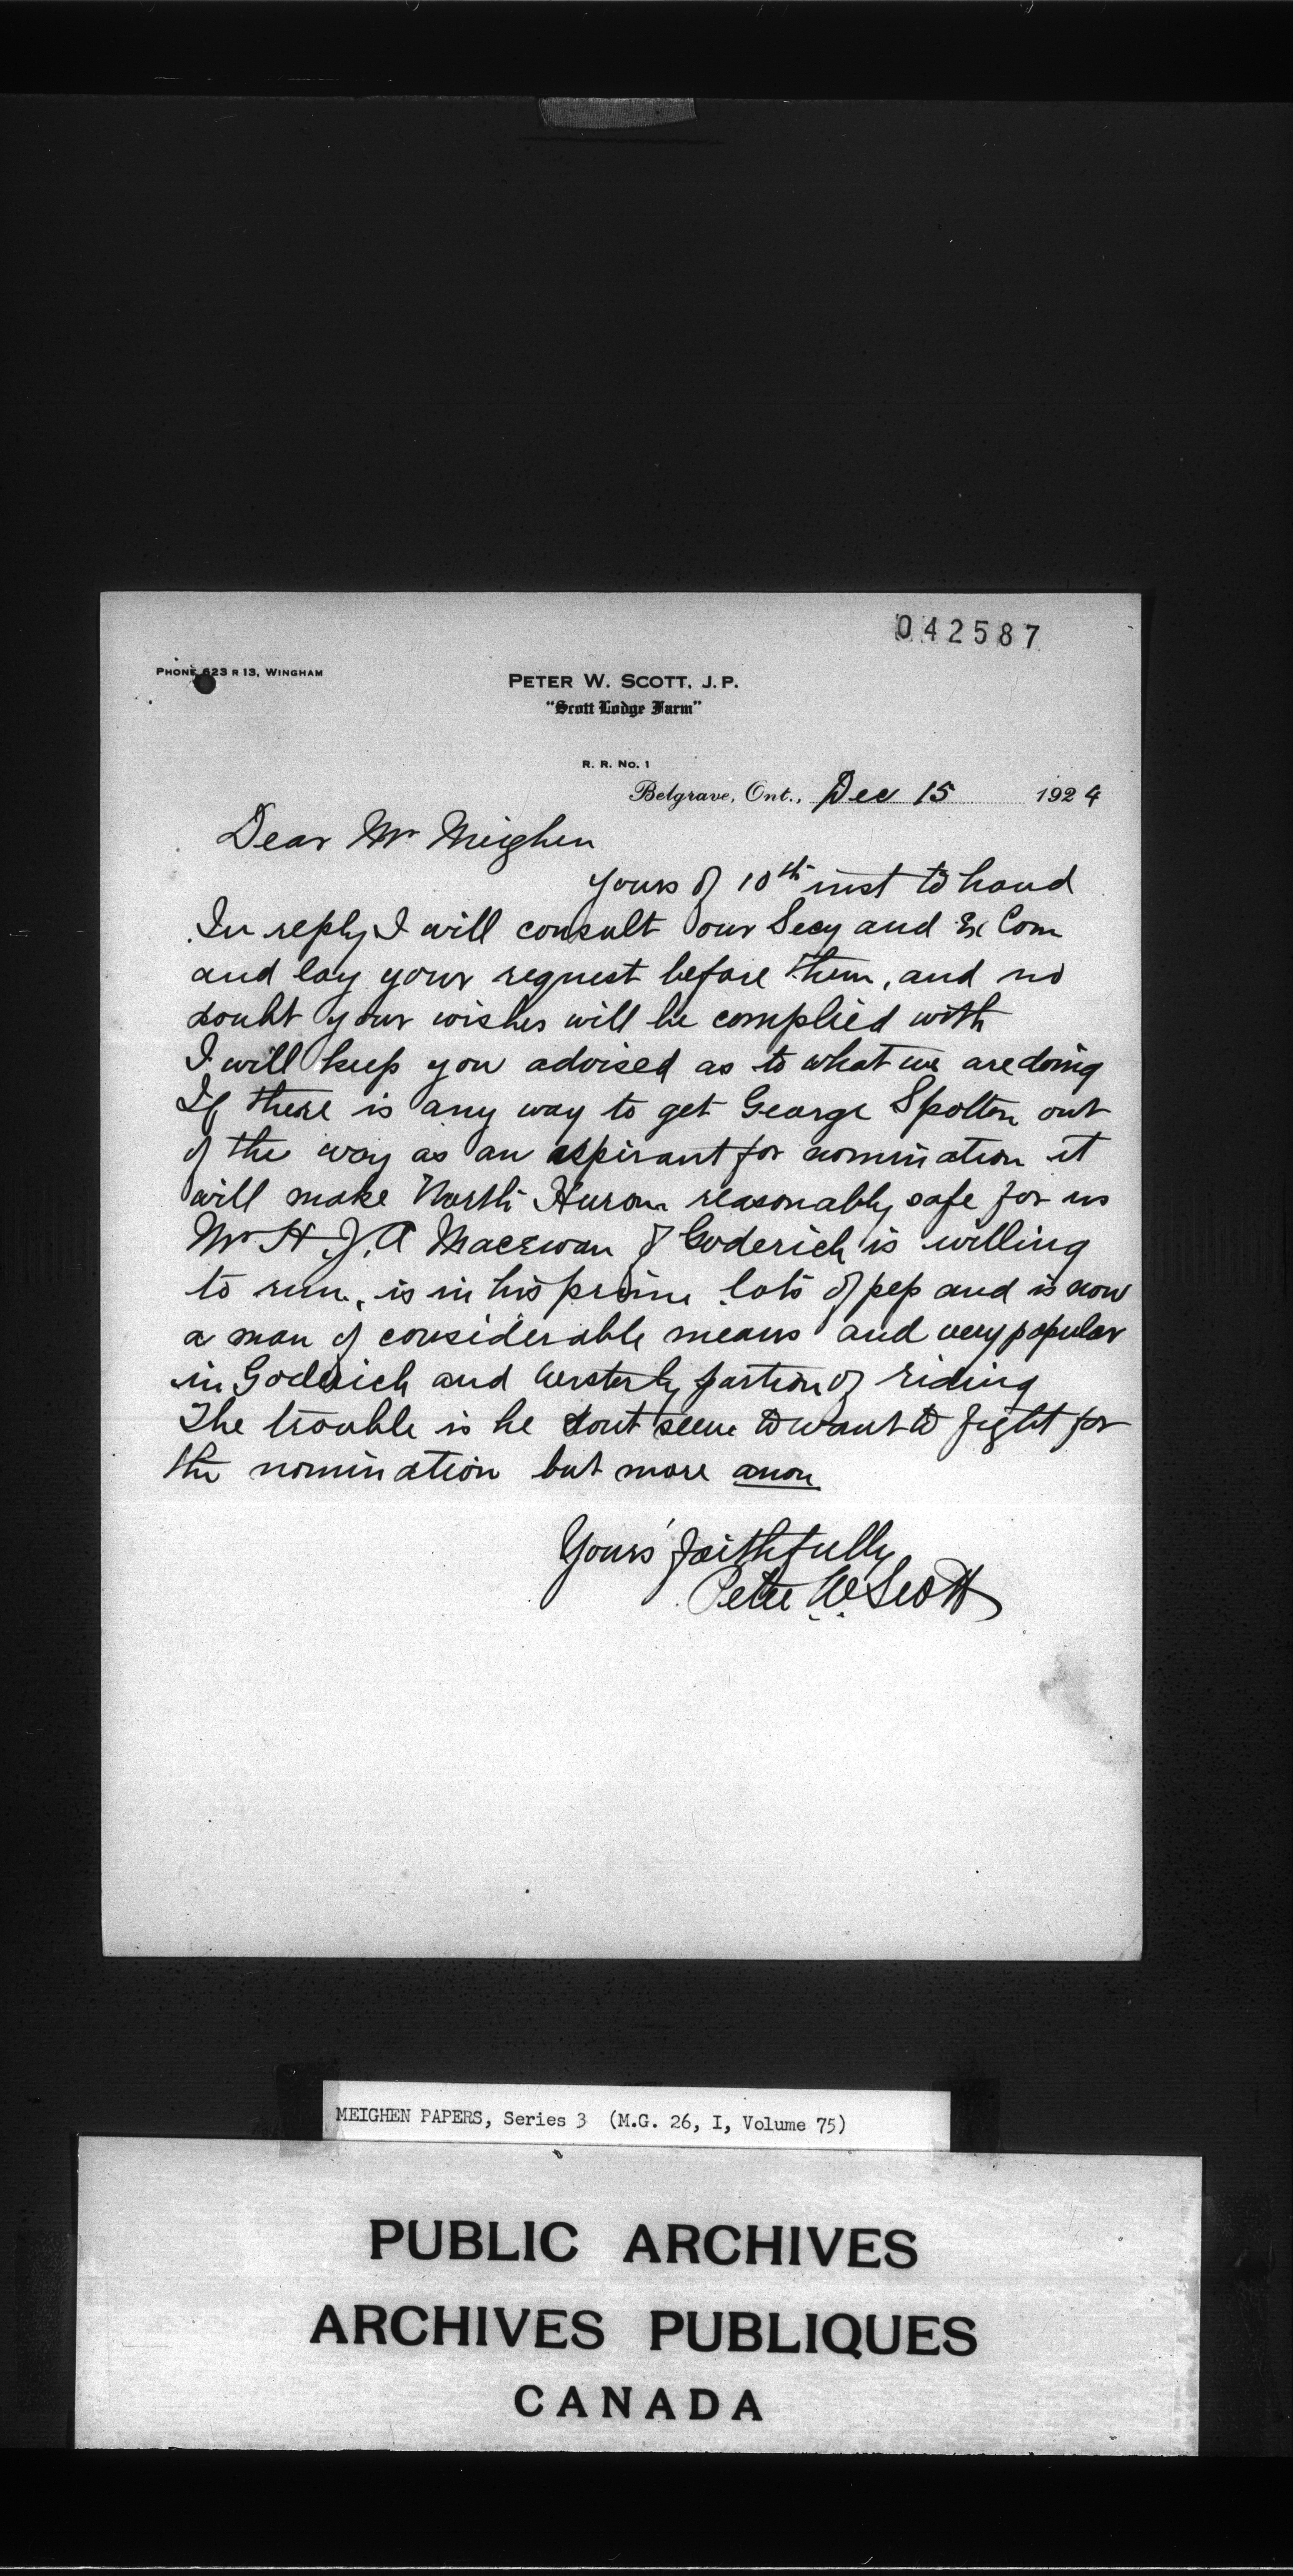 042587
PHONE 623 R 13, WINGHAM
PETER W. SCOTT, J.P.
"Scott Lodge Farm"
R. R. No. 1
Belgrave, Ont., Dec 15 1924
Dear Mr Meighen
Yours of 10th inst to hand
In reply I will consult our Secy and Ex Com
and lay your request before them, and no
doubt your wishes will be complied with
I will keep you advised as to what we are doing
If there is any way to get George Spotton out
of the way as an aspirant for nomination it
will make North Huron reasonably safe for us
Mr H. J. A Macewan of Goderich is willing
to run, is in his prime lots of pep and is now
a man of considerable means and very popular
in Goderich and Westerly portion of riding
The trouble is he dont seem to want to fight for
the nomination but more anon
Yours faithfully
Peter W. Scott
MEIGHEN PAPERS, Series 3 (M.G. 26, I, Volume 75)
PUBLIC ARCHIVES
ARCHIVES PUBLIQUES
CANADA